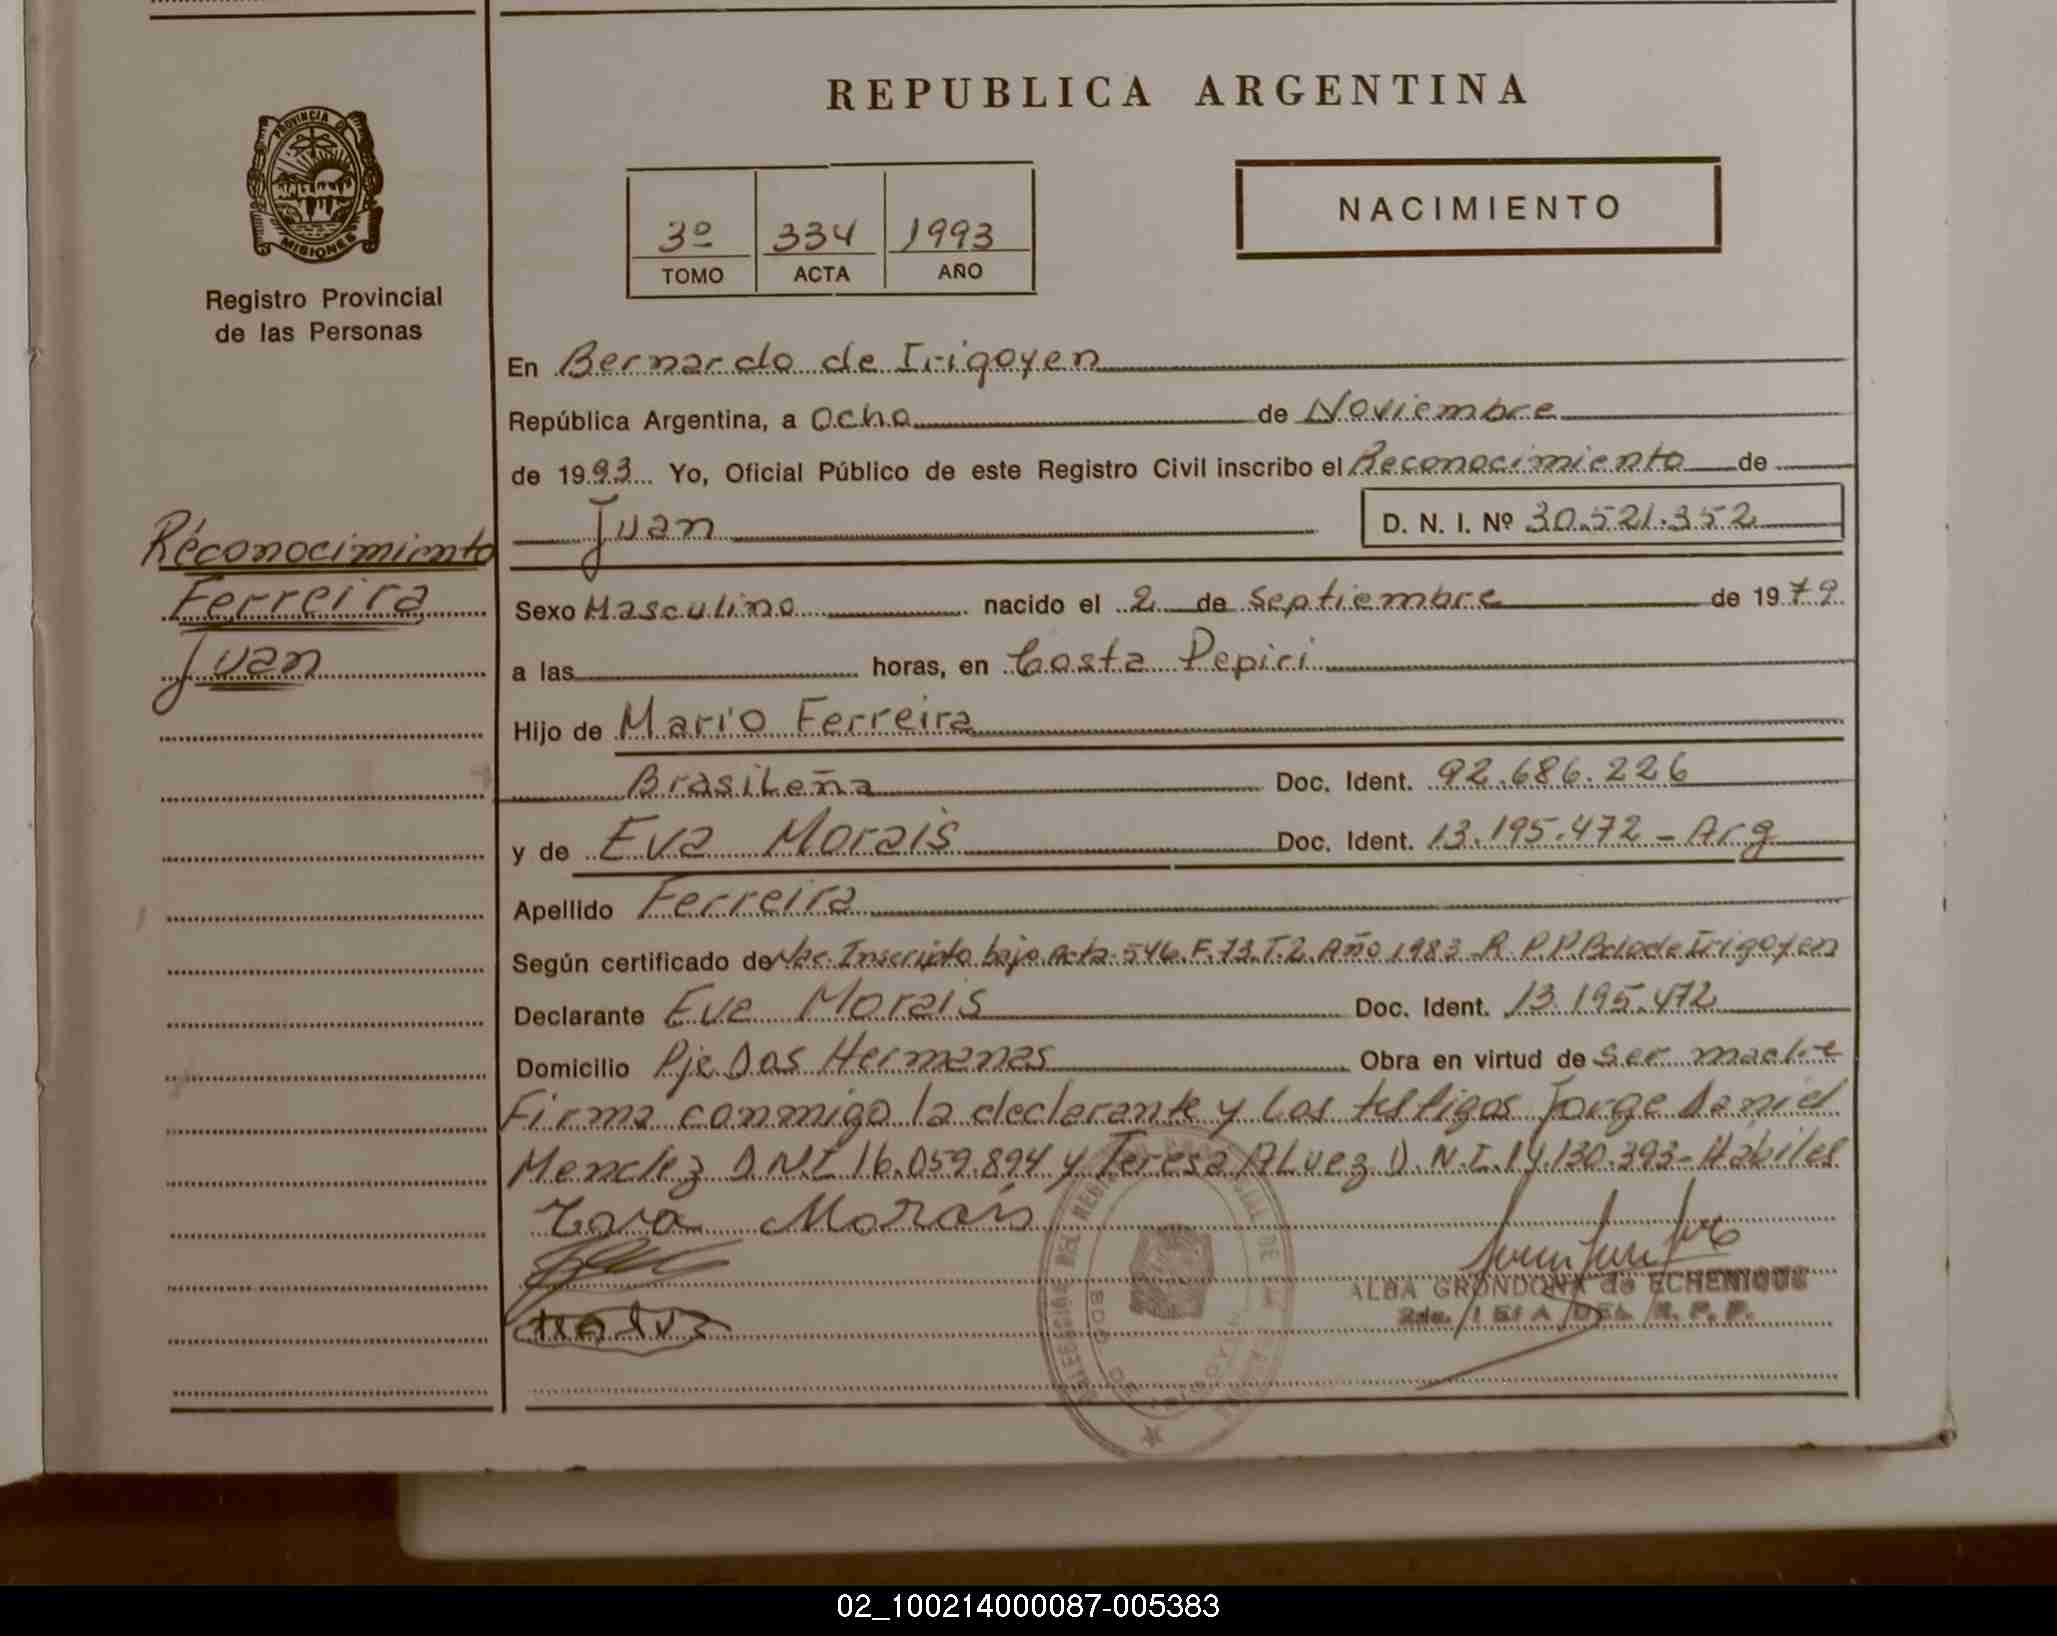 REPUBLICA ARGENTINA
PROVINCIA DE
MISIONES
Registro Provincial
de las Personas
3º 334 1993
TOMO ACTA AÑO
NACIMIENTO
En Bernardo de Irigoyen
República Argentina, a Ocho de Noviembre
de 1993 Yo, Oficial Público de este Registro Civil inscribo el Reconocimiento de
Juan D. N. I. Nº 30.521.352
Reconocimiento
Ferreira
Juan
Sexo Masculino nacido el 2 de Septiembre de 1979
a las horas, en Costa Pepiri
Hijo de Mario Ferreira
Brasileña Doc. Ident. 92.686.226
y de Eva Morais Doc. Ident. 13.195.472 - Arg
Apellido Ferreira
Según certificado de Nac. Inscripto bajo Acta 546. F. 73. T. 2. Año 1983 R. P. P. Bdo de Irigoyen
Declarante Eva Morais Doc. Ident. 13.195.472
Domicilio Pje Dos Hermanas Obra en virtud de ser madre
Firma conmigo la declarante y los testigos Jorge Daniel
Mendez D.N.I. 16.059.894 y Teresa Alvez D.N.I. 14.130.393 - Hábiles
Eova Morais
ALBA GRONDONA de ECHENIQUE
DEL R. P. P.
02_100214000087-005383